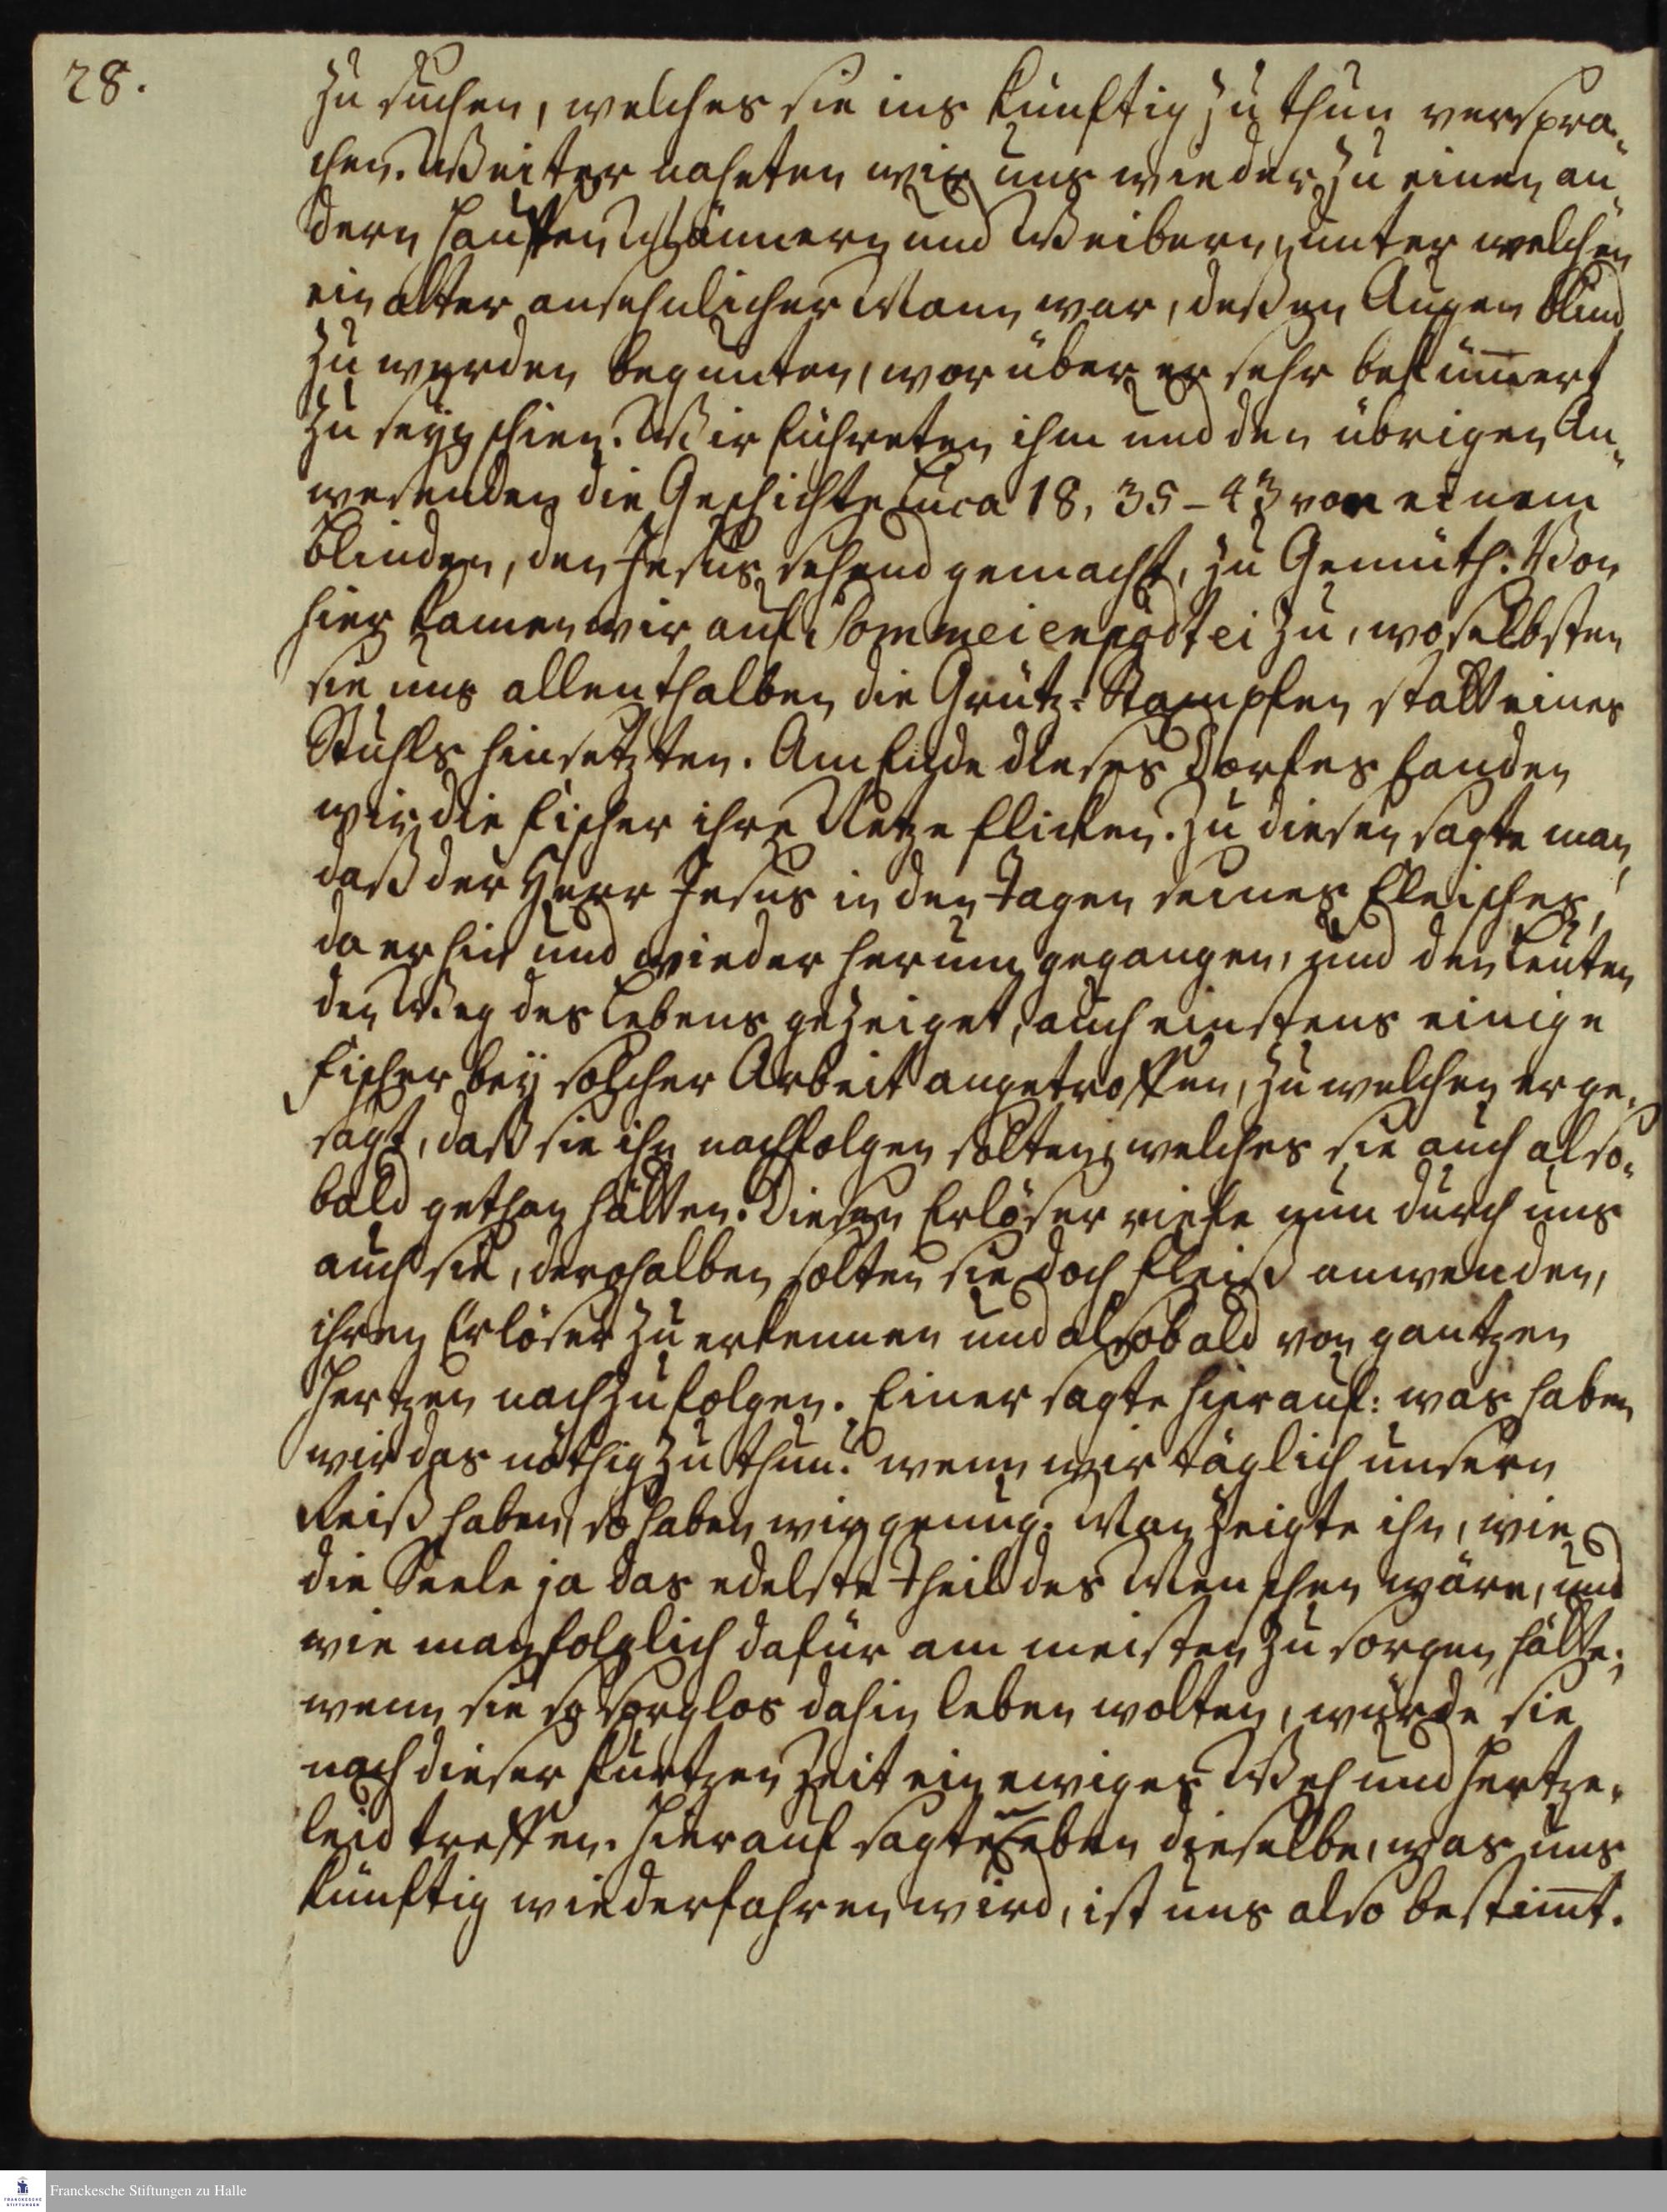 28.
zu suchen, welches sie ins künftig zu thun verspra„
chen. Weiter nahten wir uns wieder zu einen an„
dern Hauffen Männern und Weibern, unter welchen
ein alter ansehnlicher Mann war, deßen Augen blind
zu werden begunten, worüber er sehr bekümm̄ert
zu seyn schien. Wir führeten ihm und den übrigen An„
wesenden die Geschichte Luca 18, 35–43 von einem
Blinden, den Jesus sehend gemacht, zu Gemüth. Von
hier kamen wir auf Sommeienpödtei zu, woselbsten
sie uns allenthalben die Grütz-Stampfen statt eines
Stuhls hinsetzten. Am Ende dieses Dorfes fanden
wir die Fischer ihre Netze flicken. Zu diesen sagte man,
daß der Herr Jesus in den Tagen seines Fleisches,
da er hin und wieder herum gegangen, und den Leuten
den Weg des Lebens gezeiget, auch einstens einige
Fischer bey solcher Arbeit angetroffen, zu welchen er ge„
sagt, daß sie ihn nachfolgen solten, welches sie auch also„
bald gethan hätten. Dieser Erlöser riefe nun durch uns
auch sie, dershalben solten sie doch Fleiß anwenden,
ihren Erlöser zu erkennen und alsobald von gantzen
Hertzen nachzufolgen. Einer sagte hierauf: was haben
wir das nöthig zu thun? wenn wir täglich unsern
Reiß haben, so haben wir genug. Man zeigte ihn, wie
die Seele ja das edelste Theil des Menschen wäre, und
wie man folglich dafür am meisten zu sorgen hätte;
wenn sie so sorglos dahin leben wolten, würde sie
nach dieser kurtzen Zeit ein ewiges Weh und Hertze„
leid treffen. Hierauf sagte eben dieselbe, was uns
künftig wiederfahren wird, ist uns also bestim̄t.
Franckesche Stiftungen zu Halle
FRANCKESCHE
STIFTUNGEN